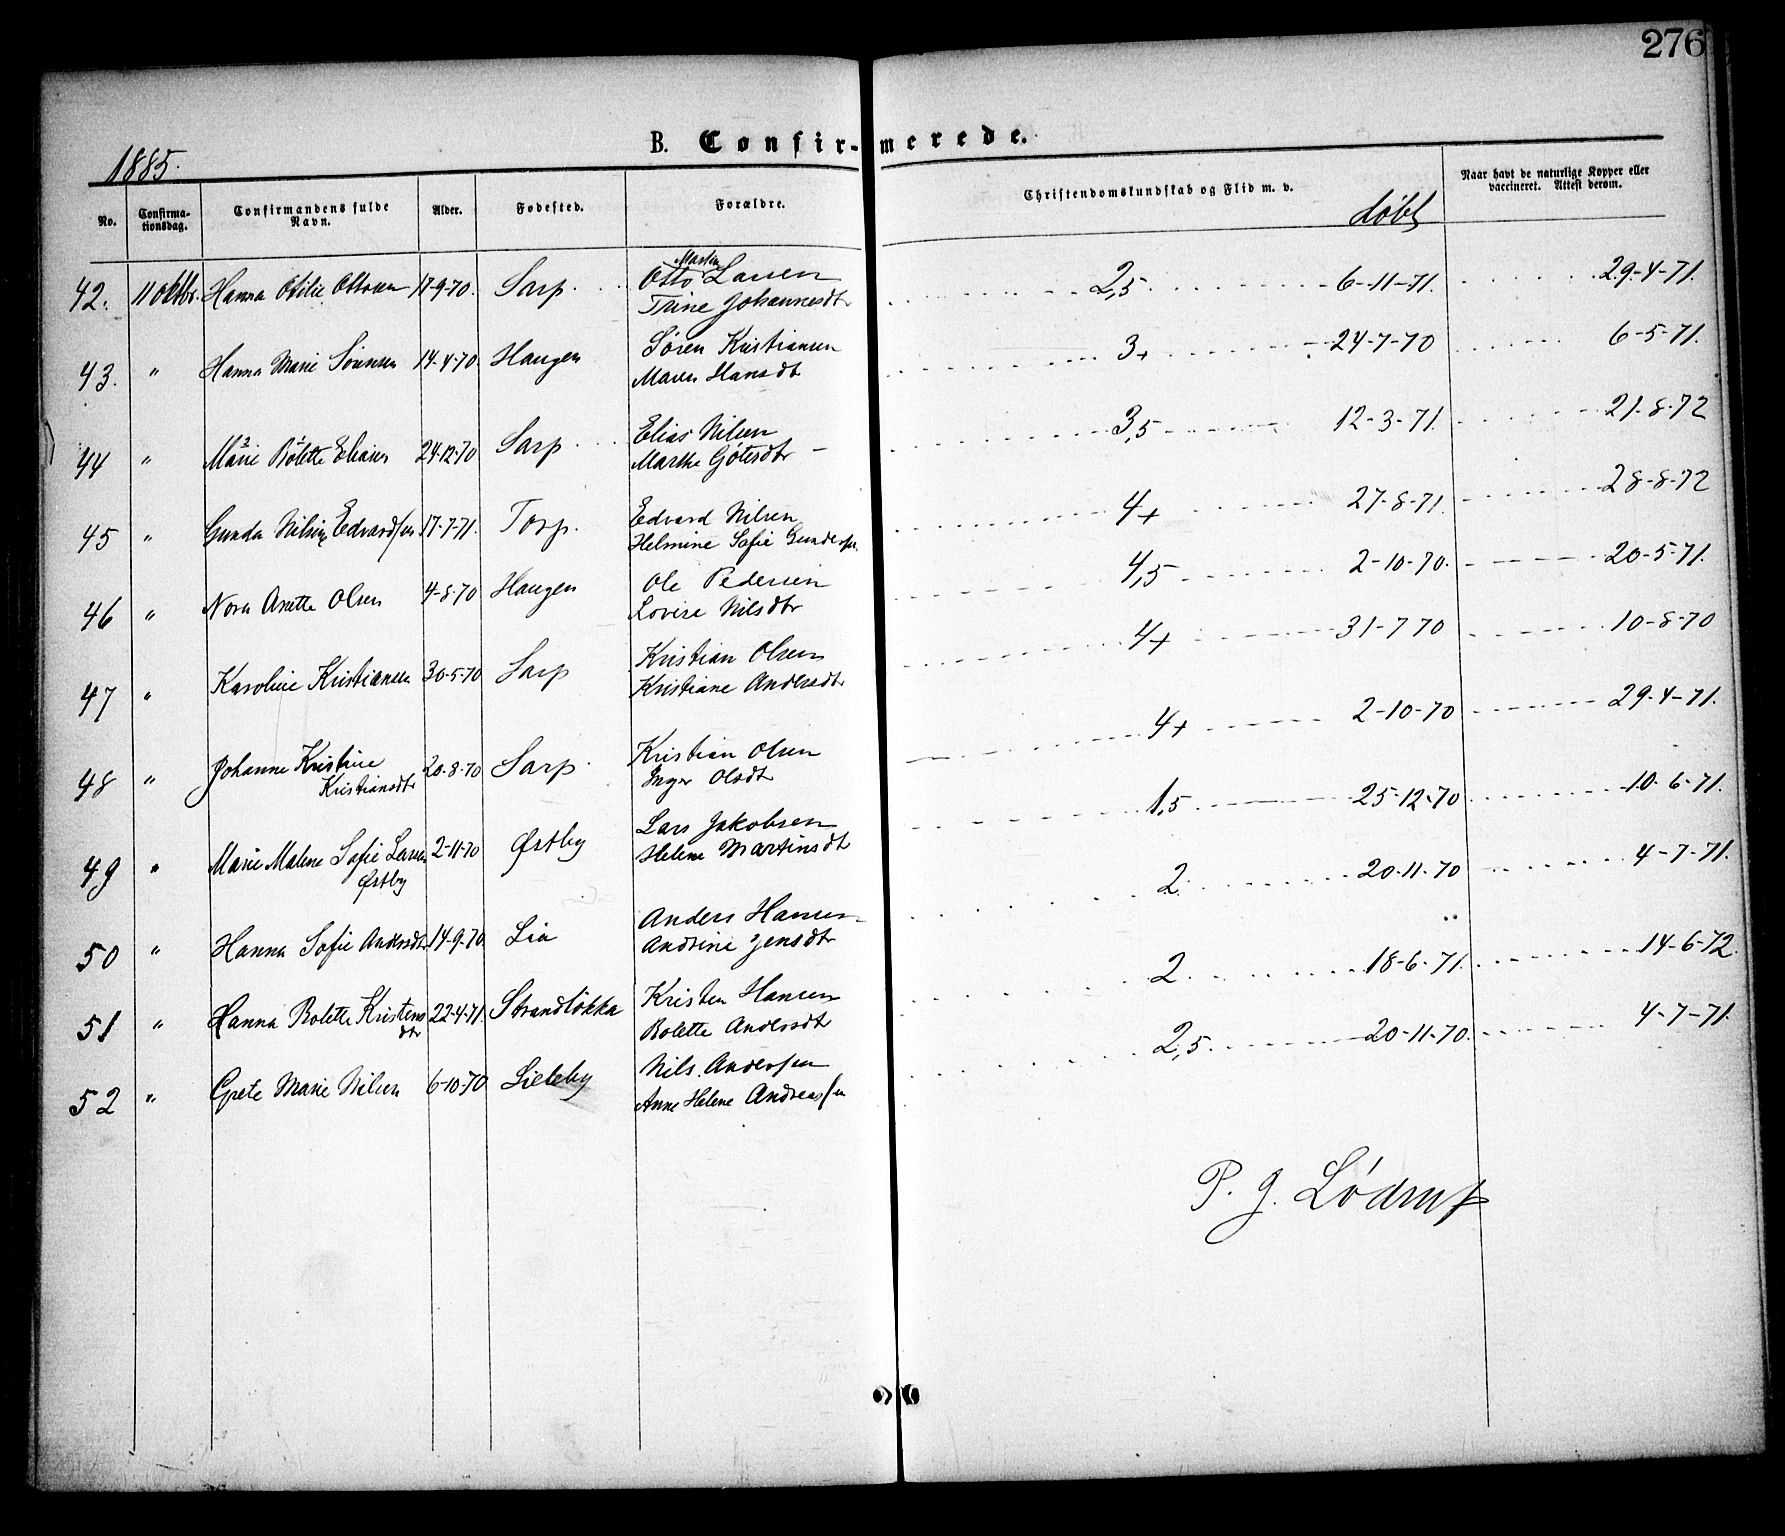 276
B. Confir-merede.
1885.
No. Confirma-tionsdag. Confirmandens fulde Navn. Alder. Fødested. Forældre. Christendomskundskab og Flid m. v. Døbt Naar havt de naturlige Kopper eller vaccineret. Attest derom.
42. 11 oktbr. Hanna Otilie Ottosen 17-9-70. Sarp. Otto Martin Larsen 2,5 6-11-71. 29-4-71.
Trine Johannesdtr
43. " Hanna Marie Sørensen 14-4-70. Haugen Søren Kristiansen 3+ 24-7-70 6-5-71.
Maren Hansdt
44 " Marie Bolette Eliasen 24-12-70 Sarp Elias Nilsen 3,5 12-3-71. 21-8-72
Marthe Gjøtesdtr
45 " Gunda Nilsine Edvardsen 17-7-71. Torp. Edvard Nilsen 4+ 27-8-71. 28-8-72
Helmine Sofie Gundersen
46 " Nora Anette Olsen 4-8-70 Haugen Ole Pedersen 4,5 2-10-70. 20-5-71.
Lovise Nilsdtr
47 " Karoline Kristiansen 30-5-70 Sarp Kristian Olsen 4+ 31-7 70 10-8-70
Kristiane Andersdtr
48 " Johanne Kristine 20-8-70 Sarp. Kristian Olsen 4+ 2-10-70 29-4-71.
Kristiansdtr Inger Olsdtr
49 " Marie Malene Sofie Larsen 2-11-70 Østby Lars Jakobsen 1,5 25-12-70 10-6-71.
Østby Helene Martinsdt
50 " Hanna Sofie Andersdtr 14-9-70. Lia Anders Hansen 2 20-11-70 4-7-71.
Andrine Jensdtr
51 " Hanna Bolette Kristens 22-4-71. Strandløkka Kristen Hansen 2 18-6-71. 14-6-72.
dtr Bolette Andersdtr
52 " Grete Marie Nilsen 6-10-70 Lieleby Nils Andersen 2,5 20-11-70. 4-7-71.
Anne Helene Andreassen
P. J. Lødrup